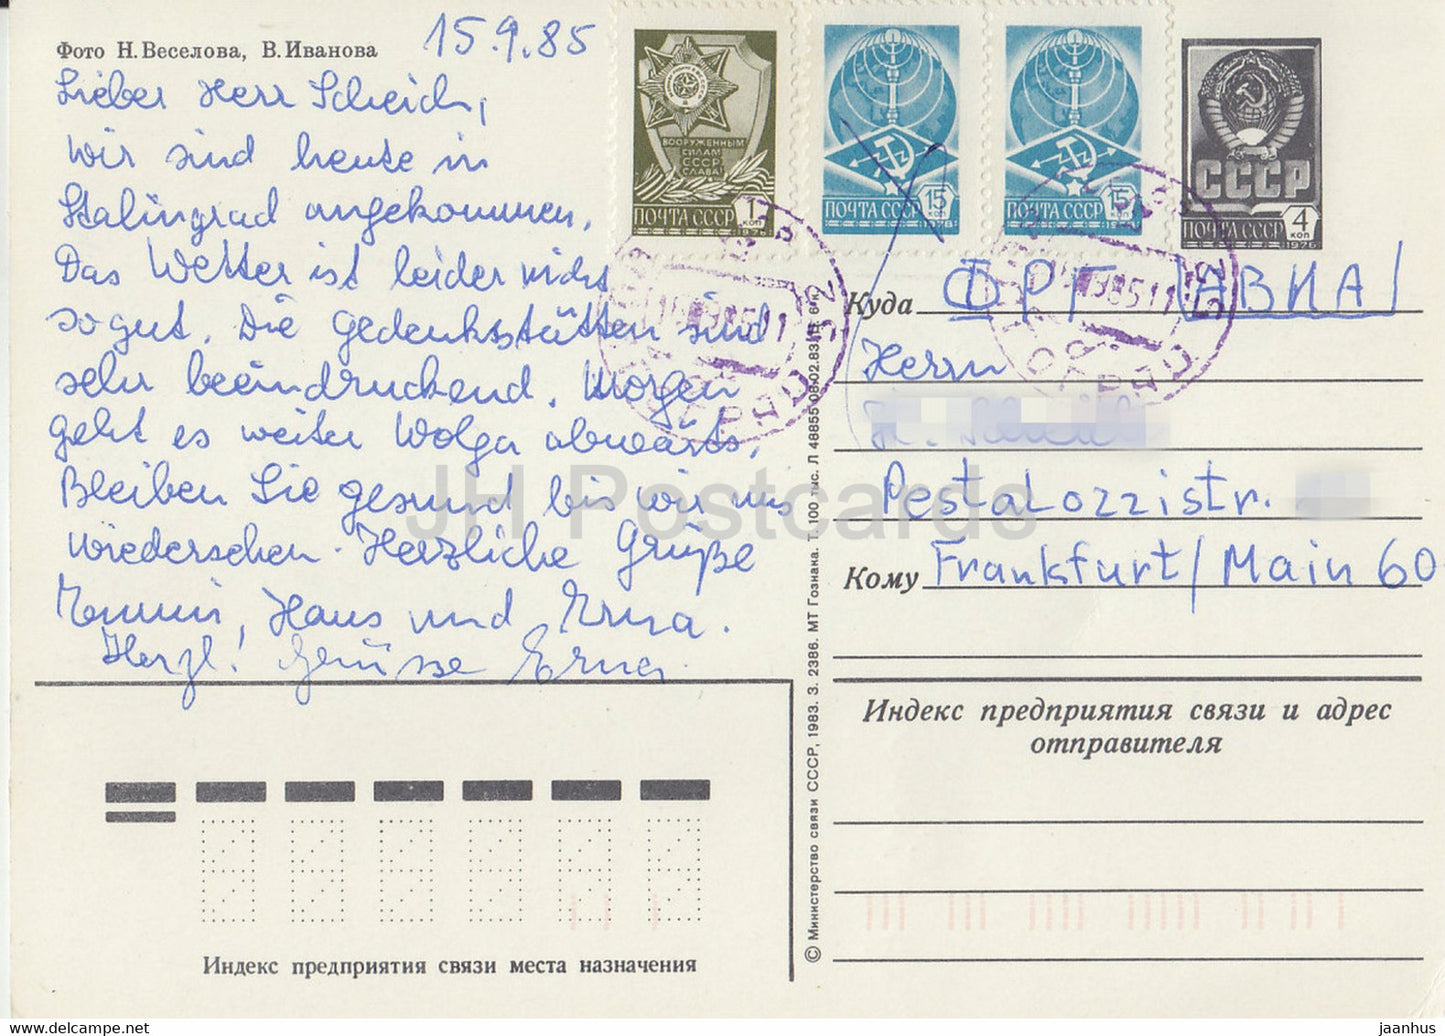 Фото Н. Веселова, В. Иванова
15.9.85
Lieber Herr Scheich,
wir sind heute in
Stalingrad angekommen.
Das Wetter ist leider nicht
so gut. Die Gedenkstätten sind
sehr beeindruckend. Morgen
geht es weiter Wolga abwärts.
Bleiben Sie gesund bis wir uns
wiedersehen. Herzliche Grüße
Hans und Erna.
Herzl! Grüsse Erna
ВООРУЖЕННЫМ
СИЛАМ
СССР
СЛАВА!
ПОЧТА СССР 1 КОП
1976
ПОЧТА СССР 15 КОП
1976
ПОЧТА СССР 15 КОП
1976
СССР
ПОЧТА СССР 4 КОП
1976
Куда ФРГ АВИА
Herrn
Pestalozzistr.
Кому Frankfurt/Main 60
Индекс предприятия связи и адрес
отправителя
Индекс предприятия связи места назначения
© Министерство связи СССР, 1983. З. 2386. МТ Гознака. Т. 100 тыс. Л 48855 08.02.83. Ц. 6 к.
JH Postcards
https://www.jhpostcards.com
jaanhus